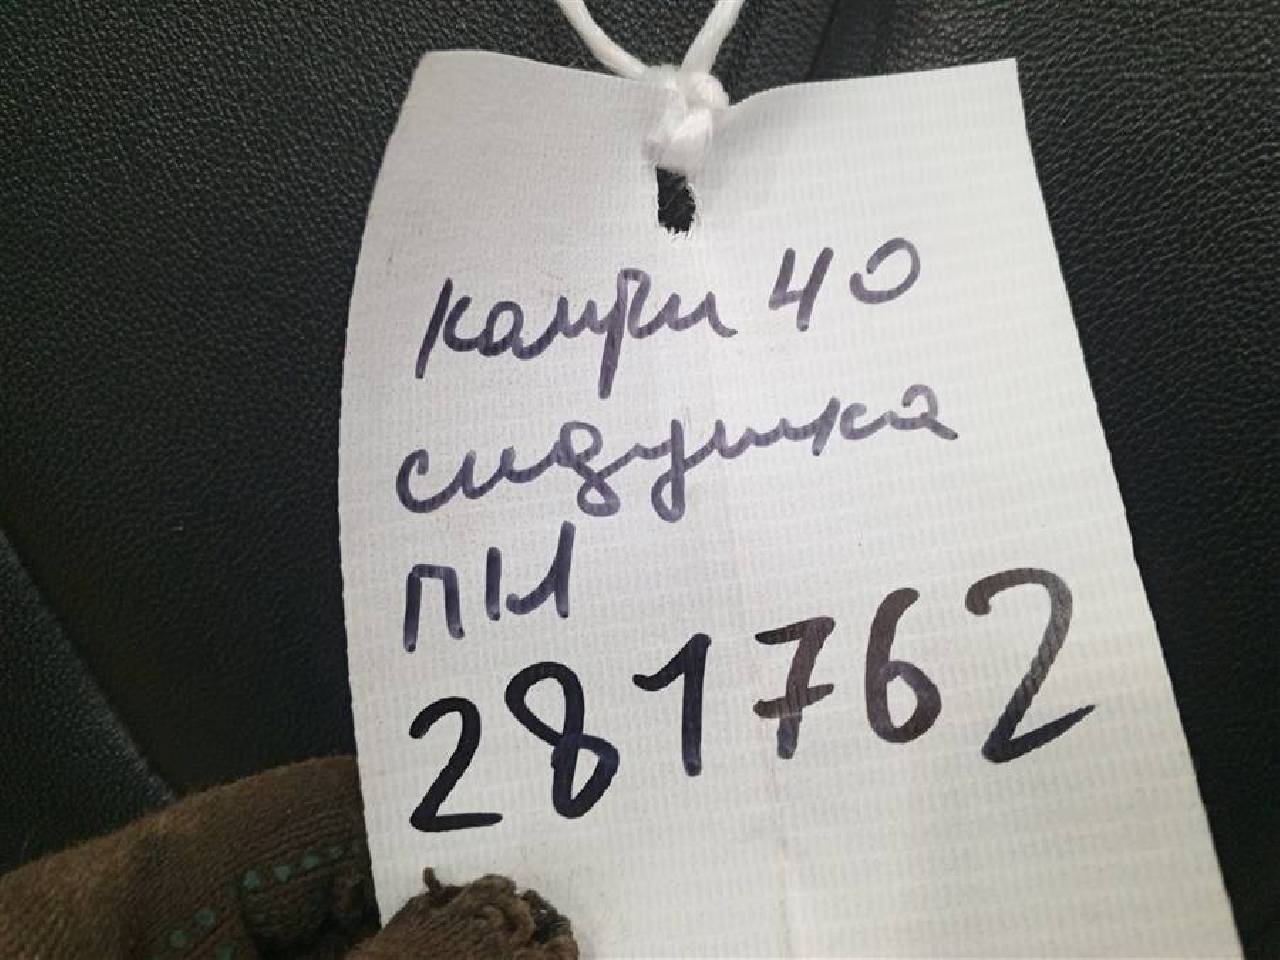 Камри 40
сидушка
ПЛ
281762